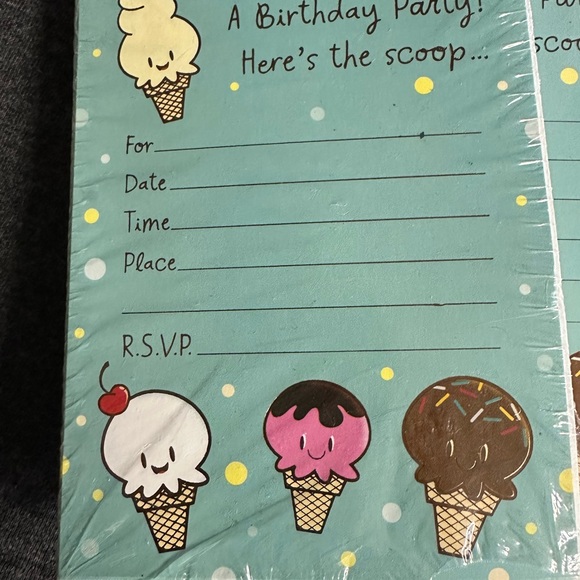 A Birthday Party!
Here's the scoop...
For
Date
Time
Place
R.S.V.P.